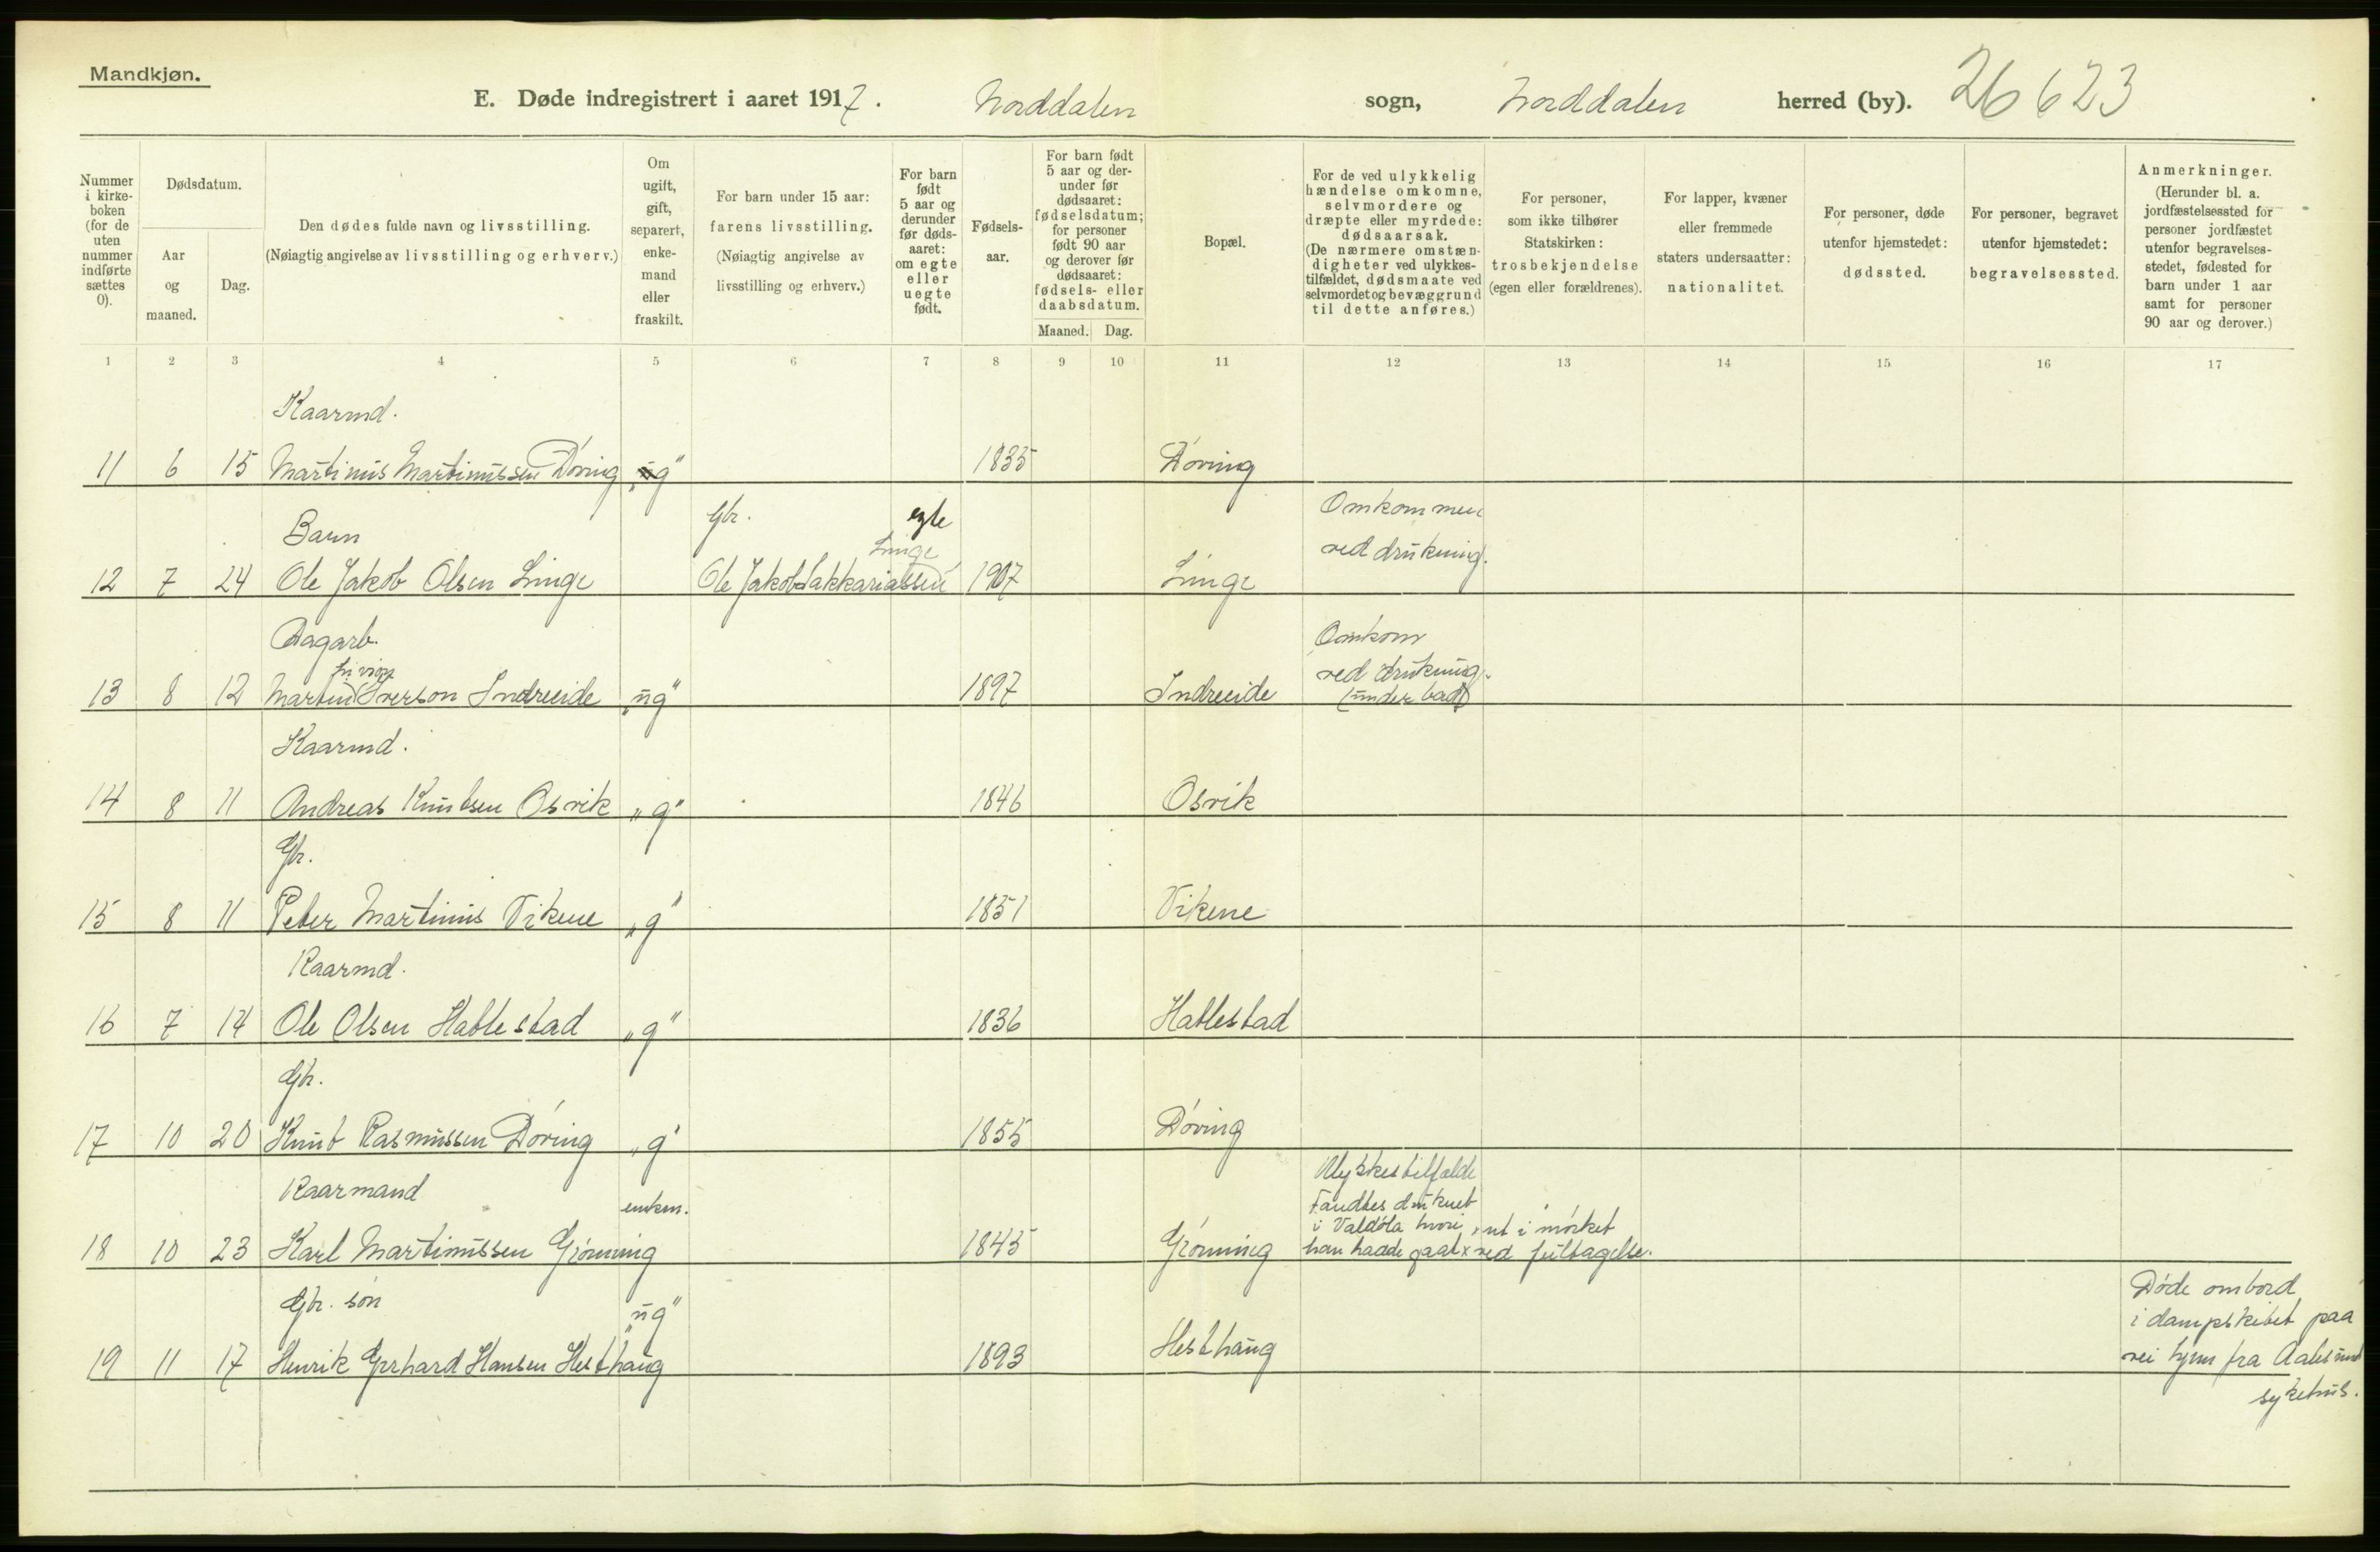 Mandkjøn.
E. Døde indregistrert i aaret 1917. Norddalen sogn, Norddalen herred (by). 26 623
Nummer i kirke-boken (for de uten nummer indførte sættes 0).
Dødsdatum.
Aar og maaned.
Dag.
Den dødes fulde navn og livsstilling.
(Nøiagtig angivelse av livsstilling og erhverv.)
Om ugift, gift, separert, enke-mand eller fraskilt.
For barn under 15 aar: farens livsstilling.
(Nøiagtig angivelse av livsstilling og erhverv.)
For barn født 5 aar og derunder før døds-aaret: om egte eller uegte født.
Fødsels-aar.
For barn født 5 aar og der-under før dødsaaret: fødselsdatum; for personer født 90 aar og derover før dødsaaret: fødsels- eller daabsdatum.
Maaned. Dag.
Bopæl.
For de ved ulykkelig hændelse omkomne, selvmordere og dræpte eller myrdede: dødsaarsak.
(De nærmere omstæn-digheter ved ulykkes-tilfældet, dødsmaate ved selvmordet og bevæggrund til dette anføres.)
For personer, som ikke tilhører Statskirken: trosbekjendelse (egen eller forældrenes).
For lapper, kvæner eller fremmede staters undersaatter: nationalitet.
For personer, døde utenfor hjemstedet: dødssted.
For personer, begravet utenfor hjemstedet: begravelsessted.
Anmerkninger.
(Herunder bl. a. jordfæstelsessted for personer jordfæstet utenfor begravelses-stedet, fødested for barn under 1 aar samt for personer 90 aar og derover.)
1 2 3 4 5 6 7 8 9 10 11 12 13 14 15 16 17
Kaarmd.
11 6 15 Martinus Martinussen Døving "g" 1835 Døving
Barn Gbr. egte Omkommen
Linge ved drukning.
12 7 24 Ole Jakob Olsen Linge Ole Jakob Sakkariassen 1907 Linge
Dagarb. Omkom
ved drukning
13 8 12 Martin Iverson Indreeide "ug" 1897 Indreeide (under bad)
Kaarmd.
14 8 11 Andreas Knutsen Osvik "g" 1846 Osvik
Gbr.
15 8 11 Peter Martinus Vikene "g" 1851 Vikene
Kaarmd.
16 7 14 Ole Olsen Hatlestad "g" 1836 Hatlestad
Gbr.
17 10 20 Knut Rasmussen Døving "g" 1855 Døving
Kaarmand enkem. Ulykkestilfælde
Fandtes druknet
i Valdøla hvori x ut i mørket
18 10 23 Karl Martinussen Grønning 1845 Grønning han hadde gaat x ved
Gbr. søn "ug" Døde ombord
i dampskibet paa
19 11 17 Henrik Gerhard Hansen Hesthaug 1893 Hesthaug vei hjem fra Aalesund
sykehus.